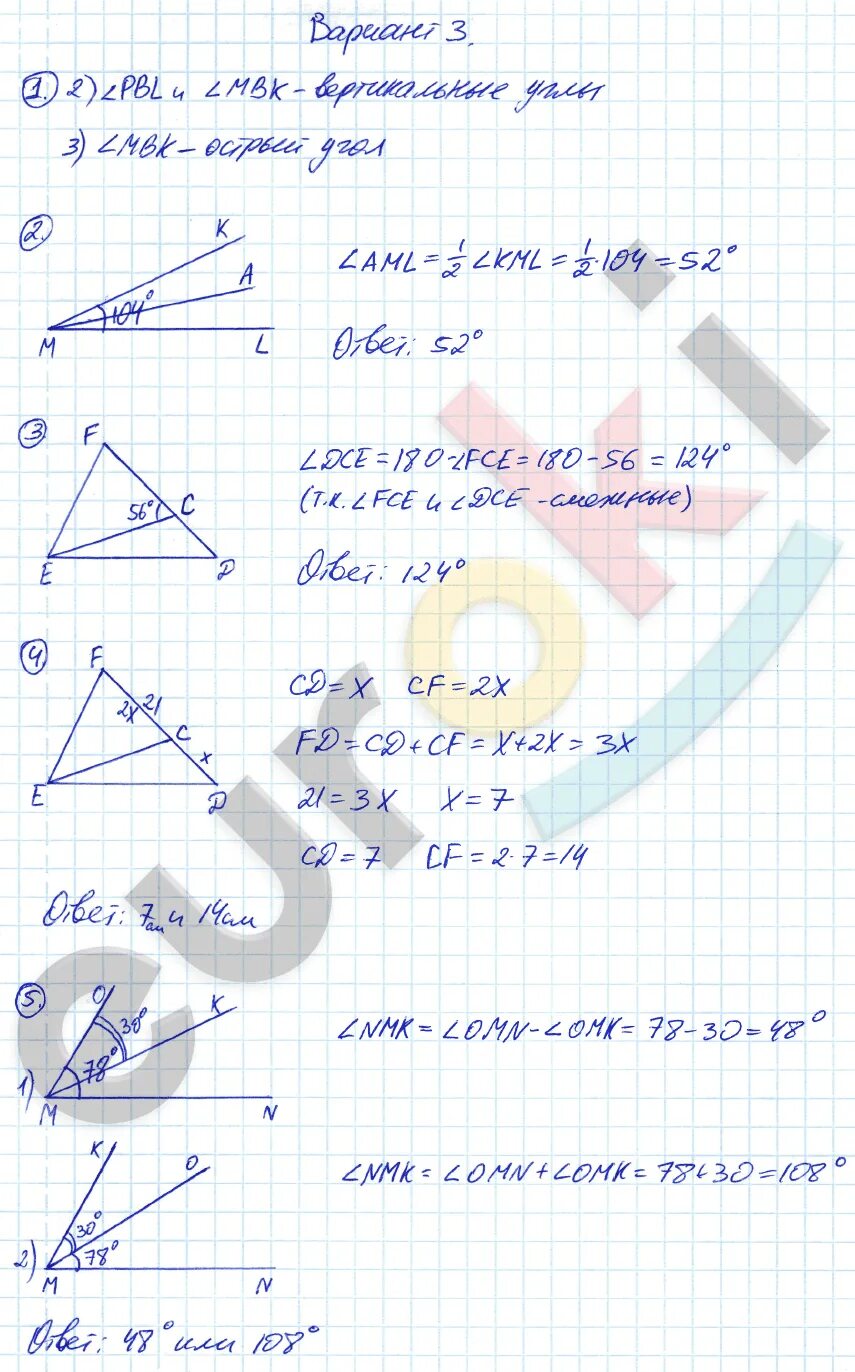 Вариант 3.
1. 2) ∠PBL и ∠MBK – вертикальные углы
3) ∠MBK – острый угол
2.
K
A
104°
M
L
∠AML = 1/2 ∠KML = 1/2 · 104 = 52°
Ответ: 52°
3
F
56°
C
E
D
∠DCE = 180 - ∠FCE = 180 - 56 = 124°
(т.к. ∠FCE и ∠DCE - смежные)
Ответ: 124°
4
F
2x
21
C
x
E
D
CD = x CF = 2x
FD = CD + CF = x + 2x = 3x
21 = 3x x = 7
CD = 7 CF = 2 · 7 = 14
Ответ: 7 см и 14 см
5.
O
K
30°
78°
1)
M
N
∠NMK = ∠OMN - ∠OMK = 78 - 30 = 48°
K
O
30°
78°
2)
M
N
∠NMK = ∠OMN + ∠OMK = 78 + 30 = 108°
Ответ: 48° или 108°
euroki